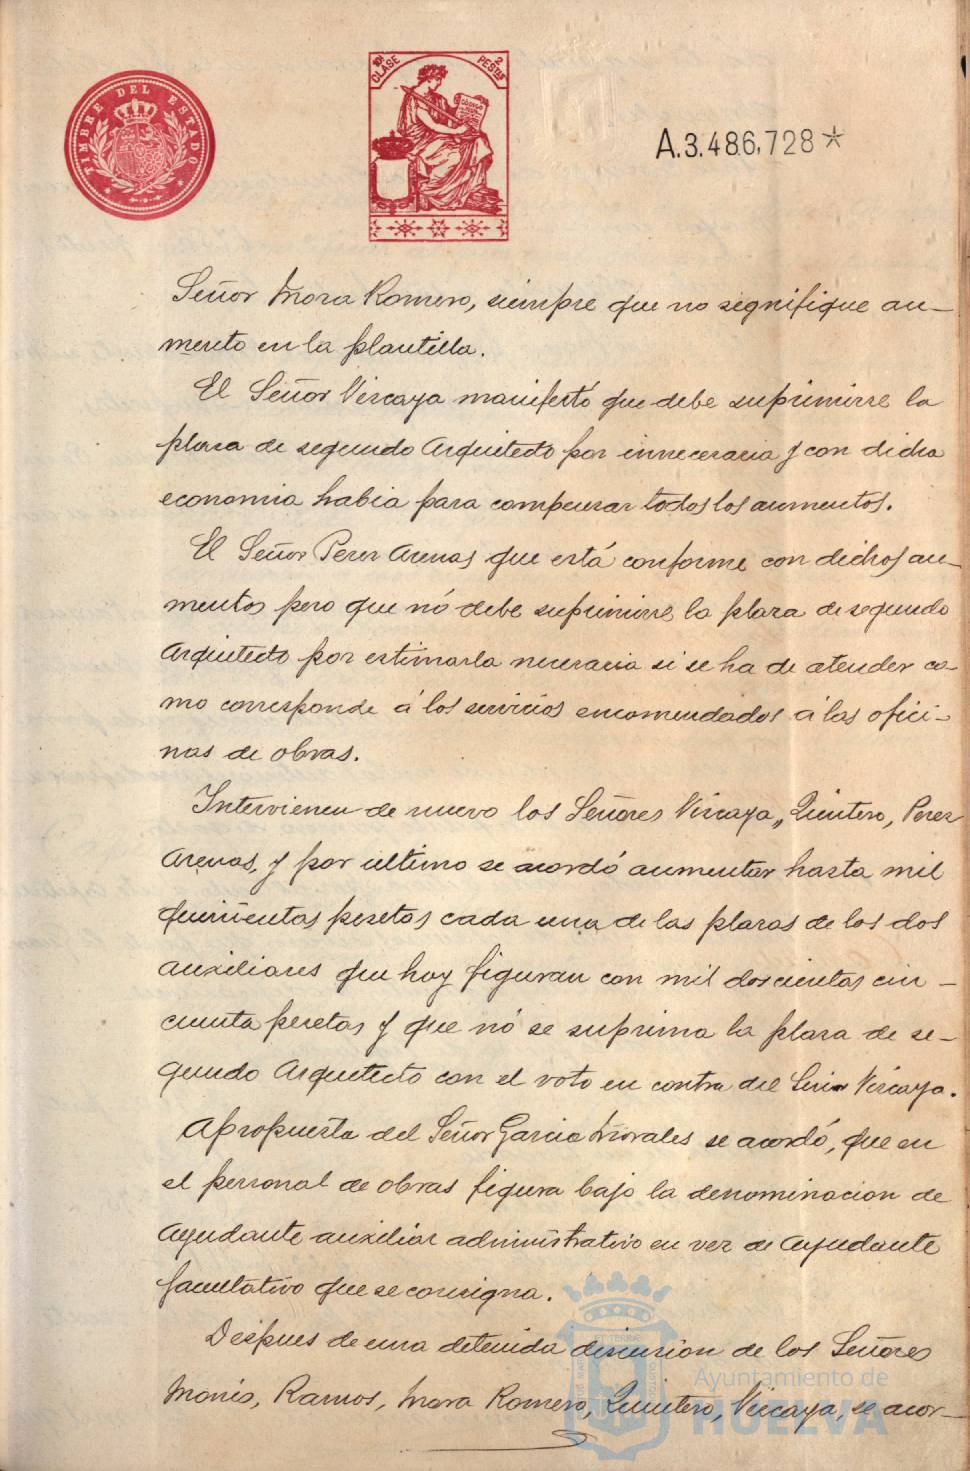 TIMBRE DEL ESTADO
10ª CLASE 2 PESETAS
A.3.486.728*
Señor Mora Romero, siempre que no signifique au-
mento en la plantilla.
El Señor Viscaya manifestó que debe suprimirse la
plaza de segundo Arquitecto por innecesaria y con dicha
economia habia para compensar todos los aumentos.
El Señor Perez Arenas que está conforme con dichos au-
mentos pero que nó debe suprimirse la plaza de segundo
Arquitecto por estimarla necesaria si se ha de atender co-
mo corresponde á los servicios encomendados á las ofici-
nas de obras.
Intervienen de nuevo los Señores Viscaya, Quintero, Perez
Arenas, y por ultimo se acordó aumentar hasta mil
quinientas pesetas cada una de las plazas de los dos
auxiliares que hoy figuran con mil doscientas cin-
cuenta pesetas y que nó se suprima la plaza de se-
gundo Arquitecto con el voto en contra del Señor Viscaya.
Apropuesta del Señor Garcia Morales se acordó, que en
el personal de obras figura bajo la denominacion de
Ayudante auxiliar administrativo en vez de Ayudante
facultativo que se consigna.
Despues de una detenida discusion de los Señores
Monis, Ramos, Mora Romero, Quintero, Viscaya, se acor-
Ayuntamiento de
HUELVA